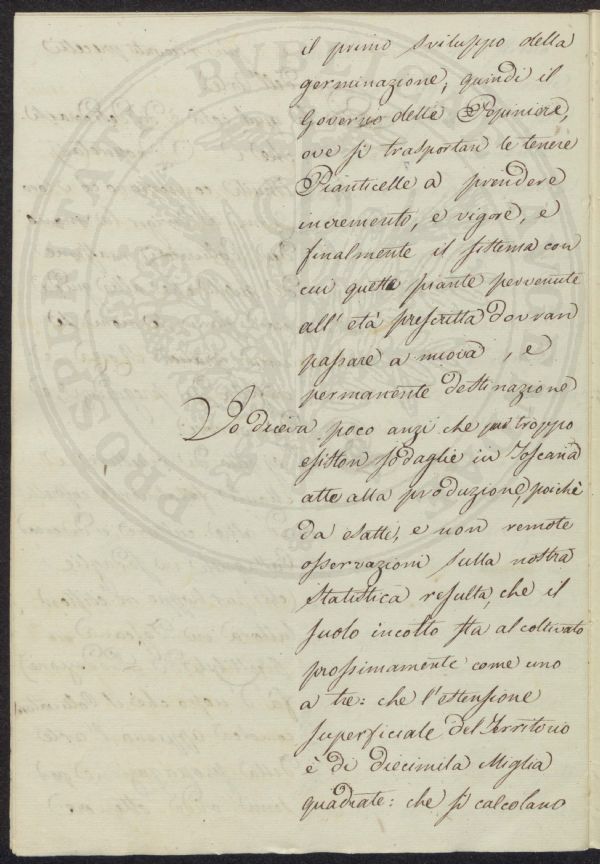 il primo sviluppo della
germinazione; quindi il
Governo delle Pepiniere,
ove si trasportan le tenere
Pianticelle a prendere
incremento, e vigore, e
finalmente il sistema con
cui queste piante pervenute
all'età prescritta dovran
passare a nuova, e
permanente destinazione
Io diceva poco anzi che pur troppo
esiston sodaglie in Toscana
atte alla produzione, poichè
da esatti, e non remote
osservazioni sulla nostra
Statistica resulta, che il
suolo incolto sta al coltivato
prossimamente come uno
a tre: che l'estensione
superficiale del Territorio
è di diecimila Miglia
quadrate: che si calcolano